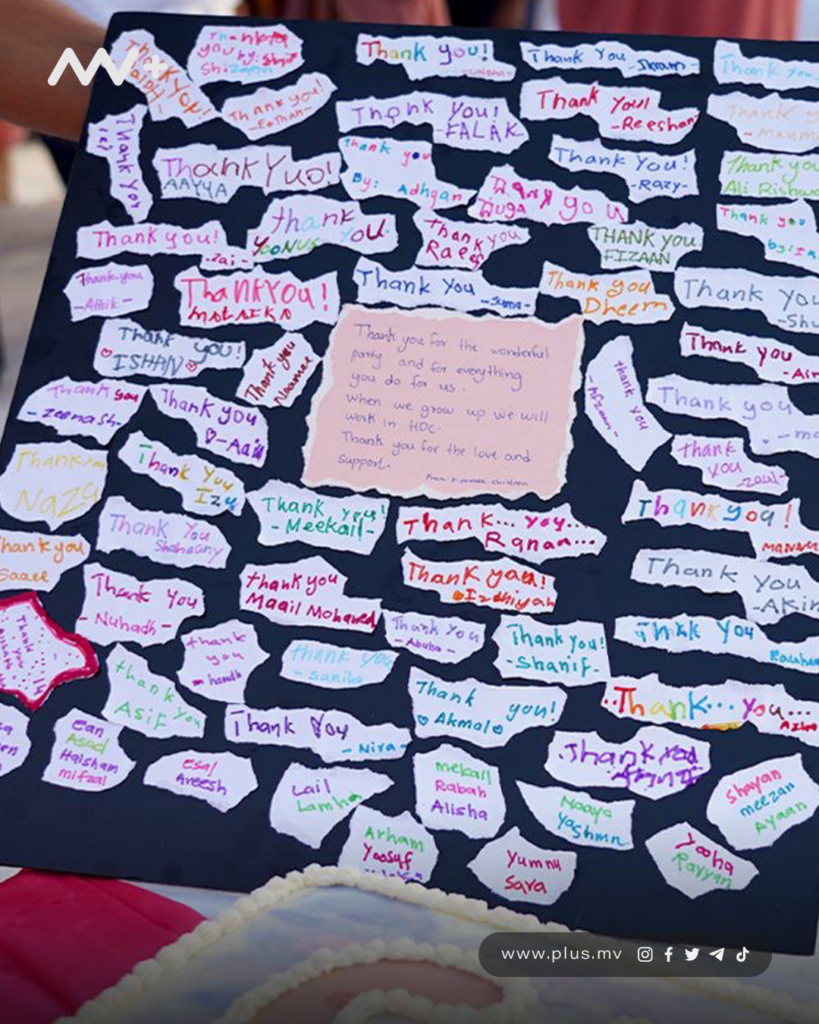 MV+
Thank you!
Thank you
by: Shif
Thank You!
Thank you!
-Eethan-
Thank You!
-FALAK
Thank You
-Ikram-
Thank you
Thank You!
-Reeshan
Thank you
Thank You
Thank Yuo!
AAYYA
Thank you
By: Adhgan
Thank You!
-Razy-
Thank you
Ali Rishwa
Thank you!
-Zai-
thank
YOONUS YOU.
Thank you
Raef
THANK YOU.
FIZAAN
Thank you
by:
Thank you
-Athik-
ThankYOU!
MALAIKA
Thank You
-Suma-
Thank you
Dheem
Thank You
-Shu
Thank You!
ISHAN
Thank you
Naamee
Thank you for the wonderful
party and for everything
you do for us.
When we grow up we will
work in HDC.
Thank you for the love and
support.
Thank you
-Afzaan-
Thank you
-Ain
Thank you
-zeenash-
Thank you
Thank you
-ma
Thank you
-zaul-
Thank you
Nazu
Thank You
Izu
Thank You
Shahaany
Thank you!
-Meekail-
Thank... you...
Ranan...
Thank you!
Thank you
Saaee
Thank You
-Nuhadh-
thank you
Maail Mohamed
Thank you!
Izdhiyan
Thank You
-Akin
thank
you
-hamdh
Thank You
-Ababa-
Thank You!
-Shanif-
Thank You
Rauhaa
thank you
-saniha
thank you
Asif
Thank you!
Akmal
Thank You
-Nira-
..Thank...You...
Thank you
Ean
Asad
Haisham
mifzal
Esal
Aveesh
Lail
Lamha
mekail
Rabah
Alisha
Naaya
Yashmn
Shayan
meezan
Ayaan
Arham
Yoosuf
Yumnu
Sara
Yooha
Rayyan
www.plus.mv